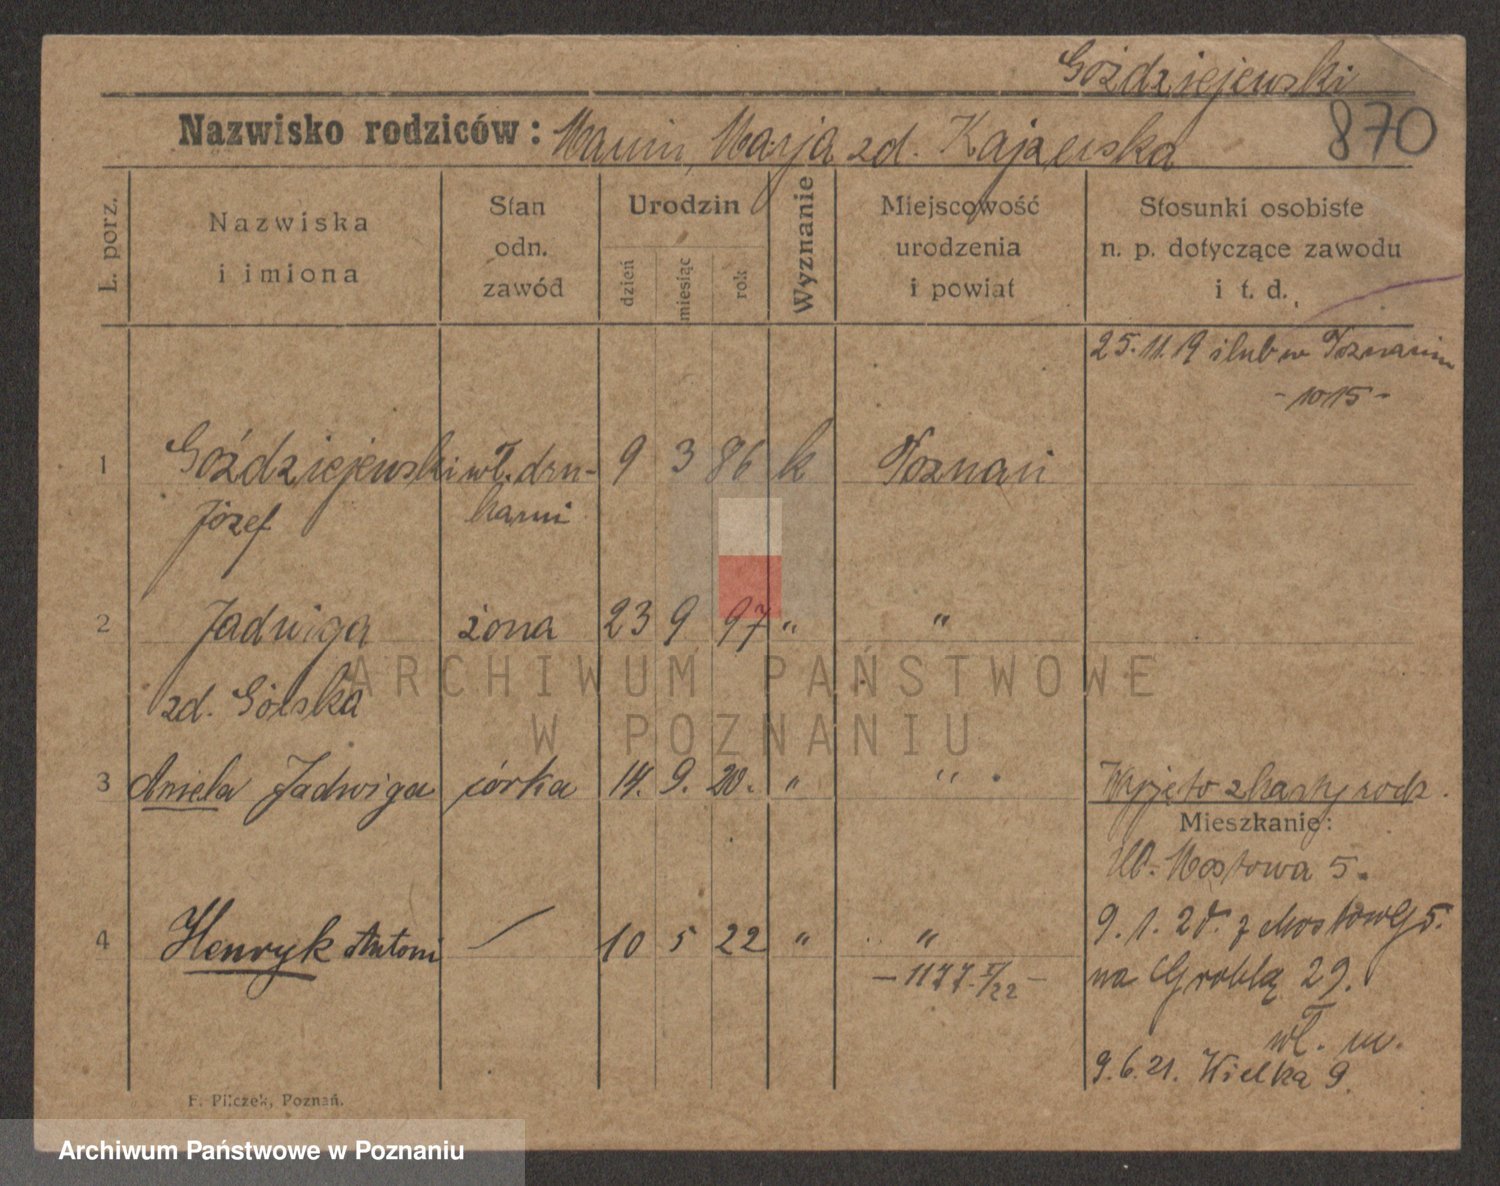 Góździejewski
870
Nazwisko rodziców: Marcin, Marja zd. Kajzerska
L. porz.
Nazwiska
i imiona
Stan
odn.
zawód
Urodzin
dzień
miesiąc
rok
Wyznanie
Miejscowość
urodzenia
i powiat
Stosunki osobiste
n. p. dotyczące zawodu
i t. d.
25.11.19 ślub w Poznaniu
- 1015 -
1 Góździejewski wł. dru- 9 3 86 k Poznań
Józef karni
2 Jadwiga żona 23 9 97 " "
zd. Górska
ARCHIWUM PAŃSTWOWE
W POZNANIU
3 Aniela Jadwiga córka 14. 9. 20. " " Wyjęto z karty rodz.
Mieszkanie:
Ul. Mostowa 5.
4 Henryk Antoni — 10 5 22 " " 9.1.28. z Mostowej 5.
- 1177 - II/22 - na Groblą 29.
wł. m.
9.6.21. Wielka 9.
F. Pilczek, Poznań.
Archiwum Państwowe w Poznaniu